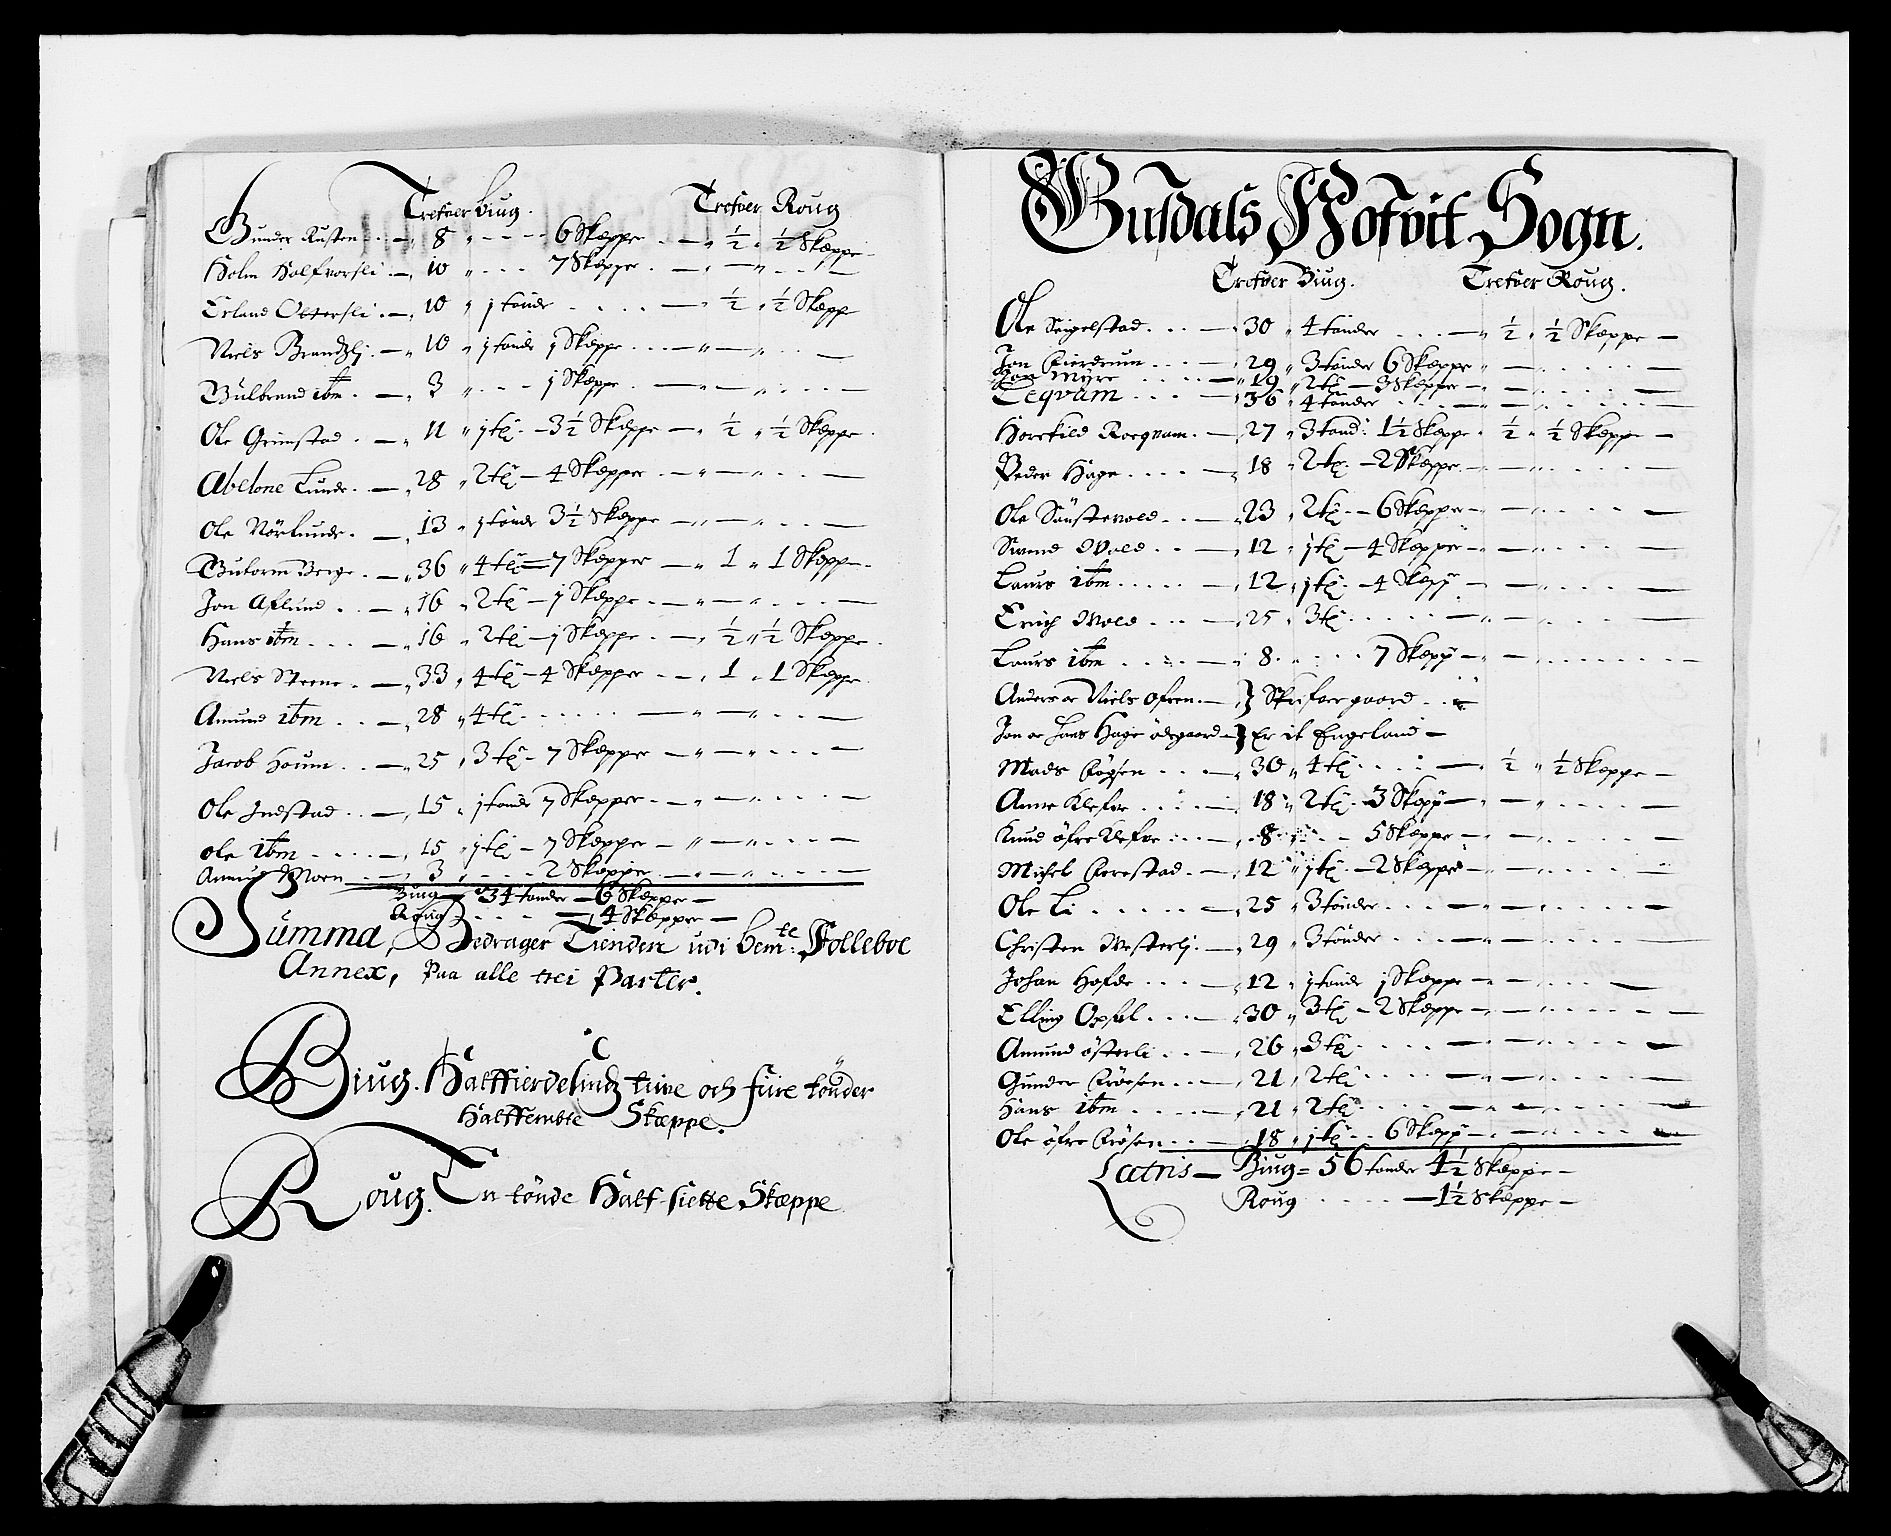 Trefver Biug. Trefver Roug
Gunder Rusten . . — 8 " - - - 6 Skæpper — " ½ " ½ Skæppe —
Holm Halfvorsli . — 10 " - - - 7 Skæpper . — " — " . . —
Erland Ottersli . — 10 " j tønde . . . . — " ½ " ½ Skæpp
Niels Brandtzlj . — 10 " j tønde j Skæppe . . . — " — " . . —
Gulbrand ibm . — 3 " . . . j Skæppe . — " — " . . . —
Ole Grimstad . — 11 " j tø. — 3½ Skæppe — " ½ " ½ Skæppe .
Abelone Lunde . — 28 " 2 tø — 4 Skæpper . — " — " . . . —
Ole Nörlunde . — 13 " j tønde 3½ Skæppe — " — " . . . —
Gutorm Berge . — 36 " 4 tø — 7 Skæpper — " 1 " 1 Skæppe .
Jon Aflund . . — 16 " 2 tø — j Skæppe . — " — " . . . —
Hans ibm . . . — 16 " 2 tø — j Skæppe . — " ½ " ½ Skæppe .
Niels Steene . — 33 " 4 tø — 4 Skæpper — " 1 " 1 Skæppe
Amund ibm . . — 28 " 4 tø . . . . . — " — " . . . —
Jacob Houm . . — 25 " 3 tø — 7 Skæpper — " — " . . . —
Ole Indstad . . — 15 " j tønde 7 Skæpper . — " — " . . . —
Ole ibm . . . . — 15 " j tø — 7 Skæpper — " — " . . . —
Amund Moen . . — 3 " . . . 2 Skæpper . — " — " . . . —
Biug — 34 tønder — 6 Skæppe —
Roug . . . . — 4 Skæpper —
Summa, Bedrager Tienden udi bemte: Folleboe
Annex, Paa alle trei Parter.
Biug. Halffierdesindz tiuve och fiire tönder
Halffembte Skæppe.
Roug. En tönde Half-siette Skæppe
Gusdals Hofvit Sogn.
Trefver Biug. Trefver Roug.
Ole Seigelstad . . . — 30 " 4 tønder . . . — " ½ " ½ Skæppe —
Jon . . . — 29 " 3 tønder 6 Skæppe " — . . . . —
Jon Myre . . . . — 19 " 2 tø — 3 Skæpper — " — . . . . —
Leqvam . . . — 36 " 4 tønder . . . — " — . . . . —
Torckild Roeqvam . — 27 " 3 tønd: 1½ Skæppe " ½ " ½ Skæppe —
Peder Hage . . . . — 18 " 2 tø. — 2 Skæppe — " — . . . . —
Ole Sönstevold . . . — 23 " 2 tø . — 6 Skæpper — " — . . . . —
Svend Wold . . . — 12 " j tø — 4 Skæpper — " — . . . . —
Laurs ibm . . . . . — 12 " j tø . — 4 Skæpp — " — . . . . —
Erich Wold . . . — 25 " 3 tø . . . . . — " — . . . . —
Laurs ibm . . . . — 8 . . . . 7 Skæpp — " — . . . . —
Anders oc Niels Ofren — } Skrifvergaard . . "
Jon oc Hans Hage ödegaard — } Er it Engeland —
Mads . . . — 30 " 4 tø . . . . — " ½ " ½ Skæppe —
Anne Klefve . . . . — 18 " 2 tø . 3 Skæpp — " — . . . . —
Knud öfre Klefve . . . — 8 " . . . 5 Skæppe — " — . . . . —
Michel . . . — 12 " j tø . — 2 Skæpper — " — . . . . —
Ole Li . . . . — 25 " 3 tønder . . . . — " — . . . . —
Christen Westerlj . — 29 " 3 tønder . . . . — " — . . . . —
Johan Hofde . . . — 12 " j tønde j Skæppe — " — . . . —
Elling Opsal . . . — 30 " 3 tø — 2 Skæppe — " — . . . . —
Amund österli . . — 26 " 3 tø . . . . . — " — . . . . —
Gunder . . . — 21 " 2 tø . . . . . — " — . . . . —
Hans ibm . . . . — 21 " 2 tø . . . . . — " — . . . . —
Ole öfre . . . — 18 " j tø . . 6 Skæpp — " — . . . . —
Lateris — Biug = 56 tønder 4½ Skæppe —
Roug . . . . . — 1½ Skæppe —